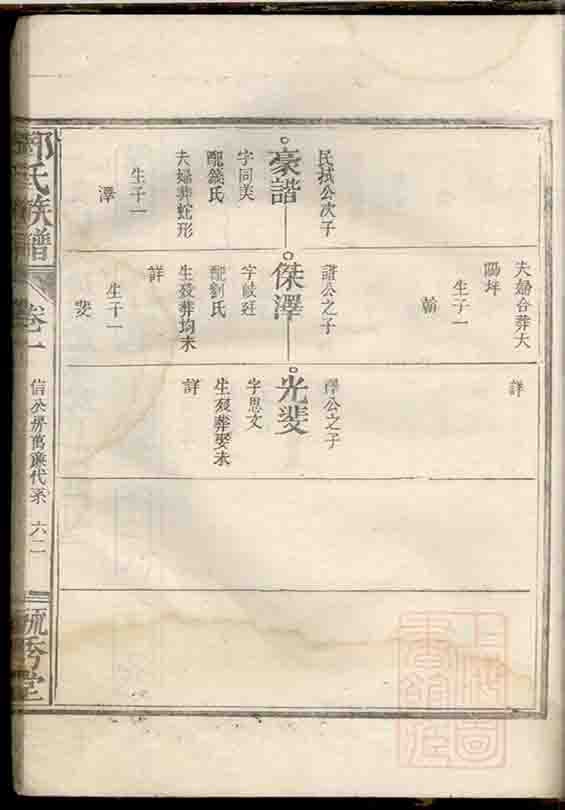 民拭公次子
豪諧
字同美
配錢氏
夫婦葬蛇形
生子一
澤
夫婦合葬大
陽坪
生子一
翰
諧公之子
傑澤
配劉氏
生歿葬均未
詳
生子一
斐
詳
澤公之子
光斐
字思文
生歿葬娶未
詳
氏族譜
卷一
六二
毓秀堂